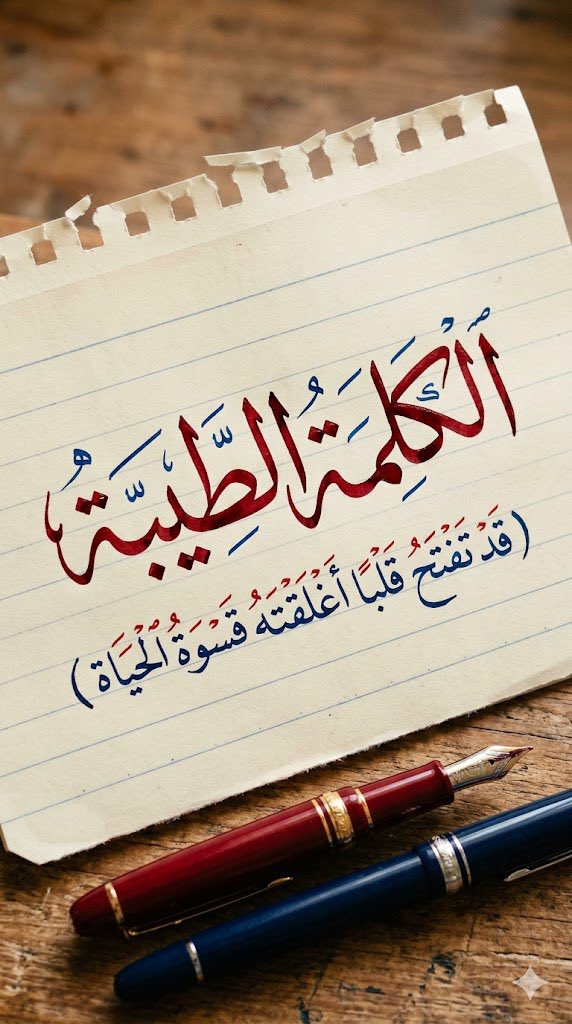 الْكَلِمَةُ الطَّيِّبَةُ
(قَدْ تَفْتَحُ قَلْبًا أَغْلَقَتْهُ قَسْوَةُ الْحَيَاةِ)